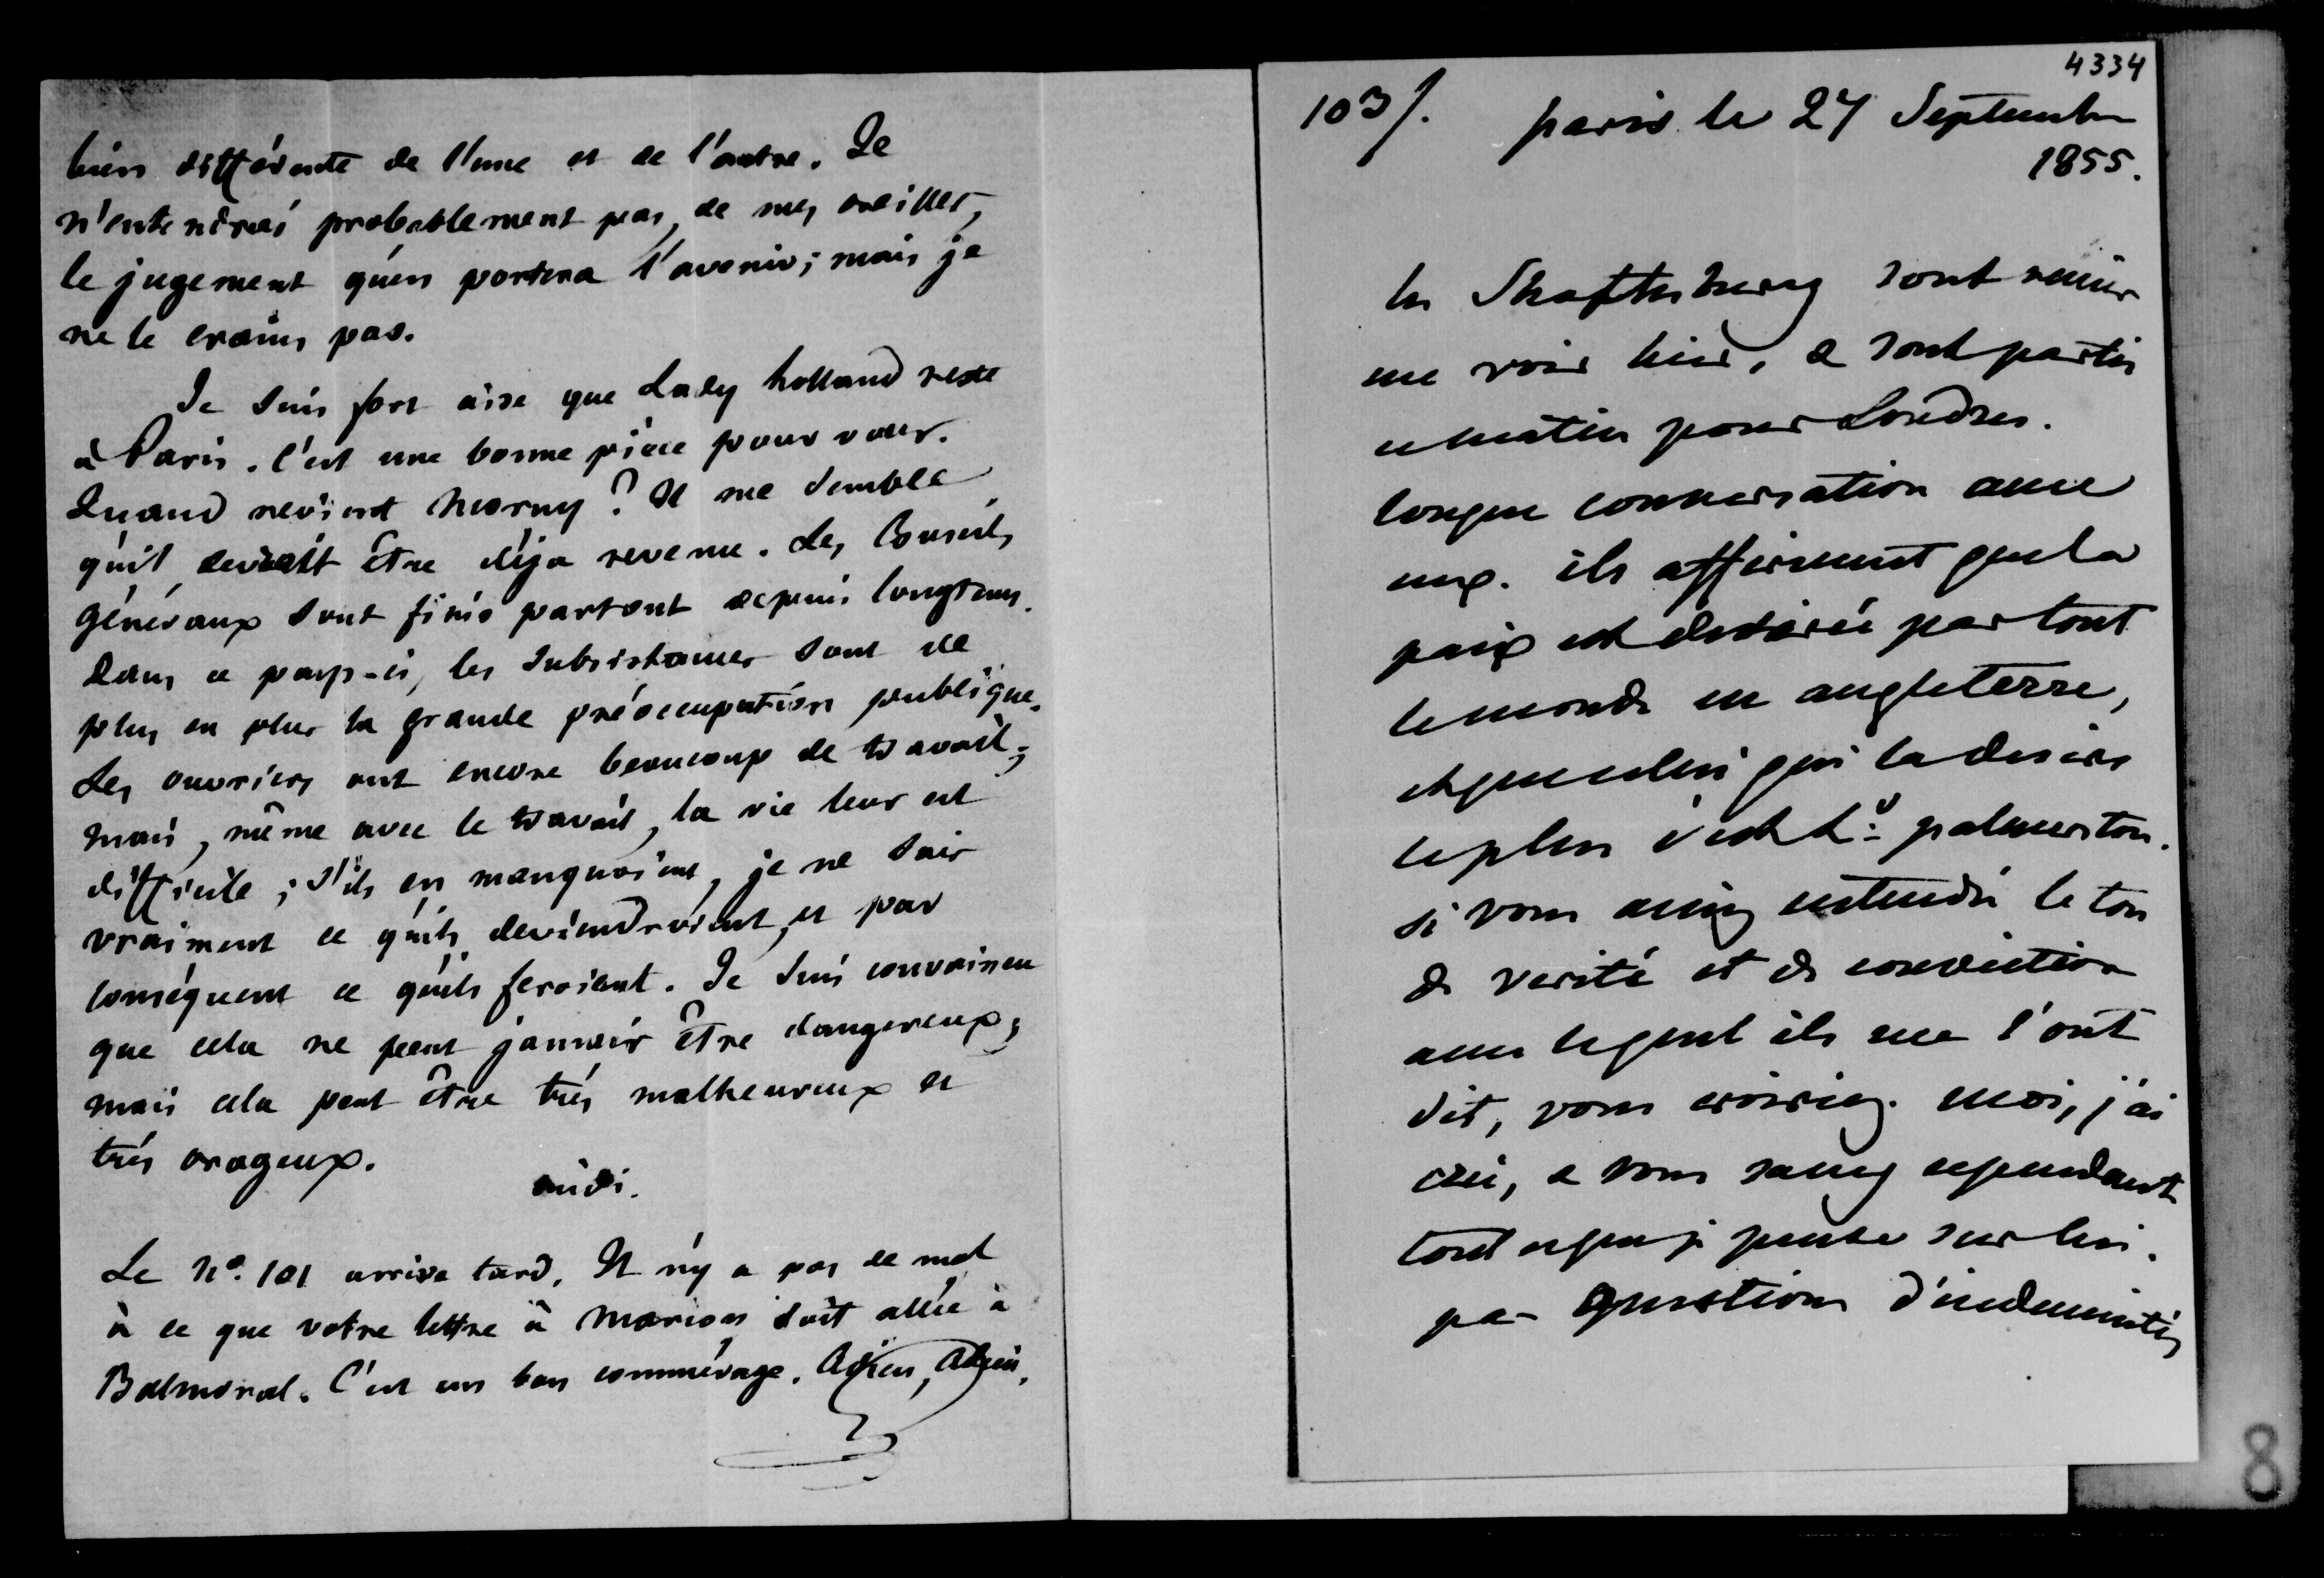 bien différente de l'une et de l'autre. Je
n'entendrai probablement pas, de mes oreilles,
le jugement qu'en portera l'avenir; mais je
ne le crains pas.
Je suis fort aise que Lady holland reste
à Paris. C'est une bonne pièce pour vous.
Quand revient Morny? Il me semble
qu'il devrait être déja revenu. Les Conseils
généraux sont finis partout depuis longtems.
Dans ce pays-ci, les subsistances sont de
plus en plus la grande préoccupation publique.
Les ouvriers ont encore beaucoup de travail;
mais, même avec le travail, la vie leur est
difficile; s'ils en manquoient, je ne sais
vraiment ce qu'ils deviendroient, et par
conséquent ce qu'ils feroient. Je suis convaincu
que cela ne peut jamais être dangereux;
mais cela peut être très malheureux et
très orageux.
Midi.
Le No. 101 arrive tard. Il n'y a pas de mal
à ce que votre lettre à Marion soit allée à
Balmoral. C'est un bon commérage. Adieu, Adieu.
4334
103/. paris le 27 Septembre
1855.
les Shaftesburg sont venus
me voir hier, & sont partis
ce matin pour Londres.
longue conversation avec
eux. ils affirment que la
paix est desirée par tout
le monde en angleterre,
et que celui qui la desire
le plus c'est Ld palmerston.
si vous aviez entendu le ton
de verité et de conviction
avec lequel ils me l'ont
dit, vous croiriez. moi, j'ai
cru, & vous savez cependant
tout ce que je pense sur lui.
pas question d'indemnités
8